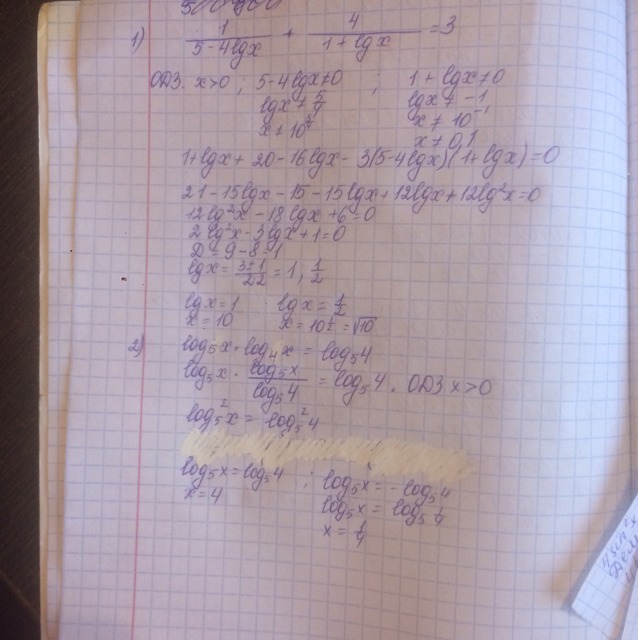 1) 1/(5-4lgx) + 4/(1+lgx) = 3
ОДЗ: x>0 ; 5-4lgx≠0 ; 1+lgx≠0
lgx≠5/4 lgx≠-1
x≠10^(5/4) x≠10^(-1)
x≠0,1
1+lgx+20-16lgx-3(5-4lgx)(1+lgx)=0
21-15lgx-15-15lgx+12lgx+12lg²x=0
12lg²x-18lgx+6=0
2lg²x-3lgx+1=0
D=9-8=1
lgx=(3±1)/(2·2)=1, 1/2
lgx=1 lgx=1/2
x=10 x=10^(1/2)=√10
2) log₅x·log₄x=log₅4
log₅x·(log₅x)/(log₅4)=log₅4. ОДЗ x>0
log₅²x=log₅²4
log₅x=log₅4 ; log₅x=-log₅4
x=4 log₅x=log₅1/4
x=1/4